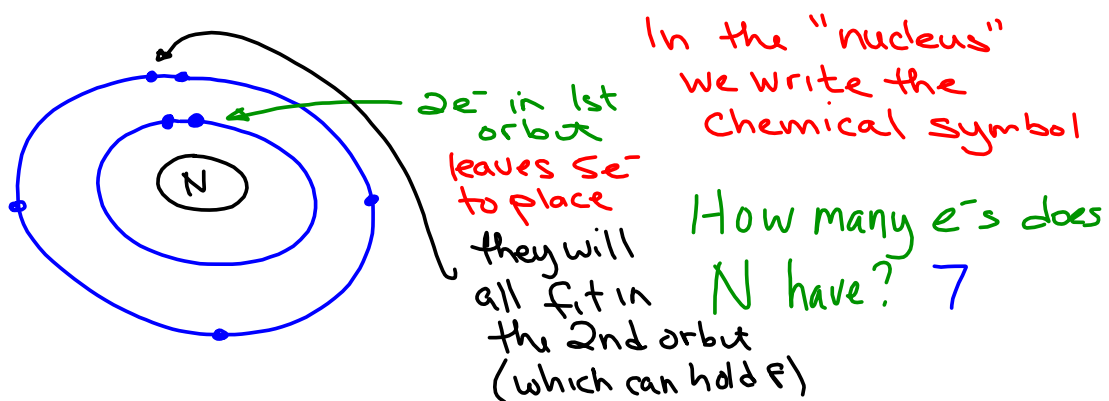 N
2e⁻ in 1st
orbut
leaves 5e⁻
to place
they will
all fit in
the 2nd orbut
(which can hold 8)
In the "nucleus"
we write the
chemical symbol
How many e⁻s does
N have? 7